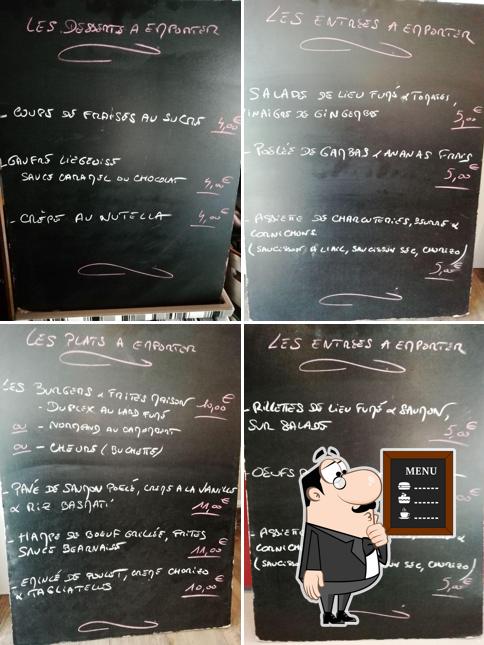 LES DESSERTS A EMPORTER
- COUPE DE FRAISES AU SUCRE 4,00€
- GAUFRE LIÉGEOISE
SAUCE CARAMEL OU CHOCOLAT 4,00€
- CRÊPE AU NUTELLA 4,00€
LES ENTRÉES A EMPORTER
SALADE DE LIEU FUMÉ & TOMATES,
VINAIGRE DE GINGEMBRE 5,00€
- POÊLÉE DE GAMBAS & ANANAS FRAIS
5,00€
- ASSIETTE DE CHARCUTERIES, BEURRE &
CORNICHONS
(SAUCISSON À L'AIL, SAUCISSON SEC, CHORIZO)
5,00€
LES PLATS A EMPORTER
LES BURGERS & FRITES MAISON 10,00€
- DUPLEX AU LARD FUMÉ
OU - NORMAND AU CAMEMBERT
OU - CHEVRE (BUCHETTE)
- PAVÉ DE SAUMON POÊLÉ, CREME A LA VANILLE
& RIZ BASMATI 11,00€
- HAMPE DE BOEUF GRILLÉE, FRITES
SAUCE BEARNAISE 11,00€
- EMINCÉ DE POULET, CREME CHORIZO
& TAGLIATELLES 10,00€
LES ENTRÉES A EMPORTER
- RILLETTES DE LIEU FUMÉ & SAUMON,
SUR SALADE 5,00€
- OEUFS
MENU
- ASSIETTE
CORNICHONS
(SAUCISSON SEC, CHORIZO)
5,00€